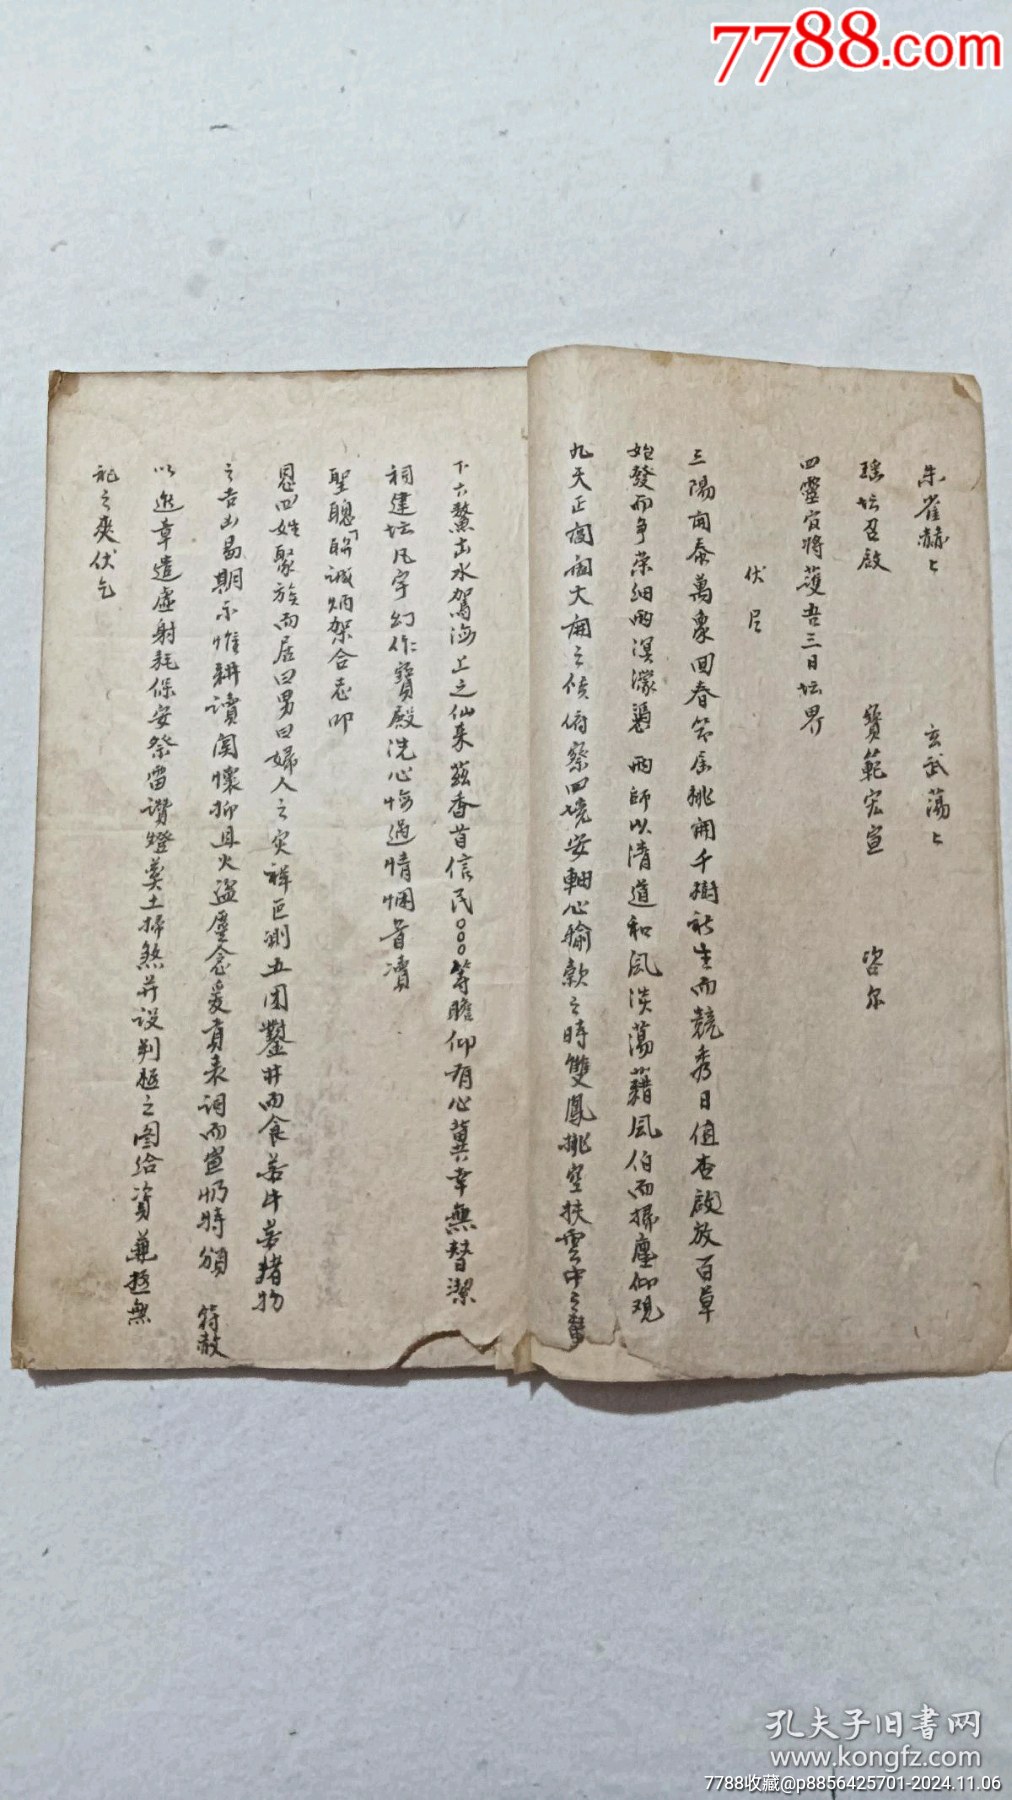 7788.com
朱雀赫〻 玄武蕩〻
瑶坛召啟 寶範宏宣 咨尔
四靈官將護吾三日坛界
伏以
三陽開泰萬象回春 挑開千樹 生而競秀日值杏 放百草
始發而爭荣細雨溟濛 雨師以清道和風淡蕩藉風伯而掃塵仰观
九天正 閶大開之候俯察四境安 心輸款之時雙鳳挑空扶雲中之輦
下六鰲出水駕海上之仙来茲香首信民〇〇〇等瞻仰有心冀幸無替潔
祠建坛凡宇幻作寶殿洗心悔過情悃 瀆
聖聰聊誠炳架合志叩
恩四姓聚族而居曰男曰婦人之灾祥叵測五团鑿井而食若牛若猪物
之吉凶曷期不惟耕讀関懷抑且火盗塵念爰賁表詞而宣 特頒 符赦
以 章遣虚射耗保安祭雷讚燈奠土掃煞并設判 之图给資兼 無
祀之 伏乞
孔夫子旧书网
www.kongfz.com
7788收藏@p8856425701-2024.11.06